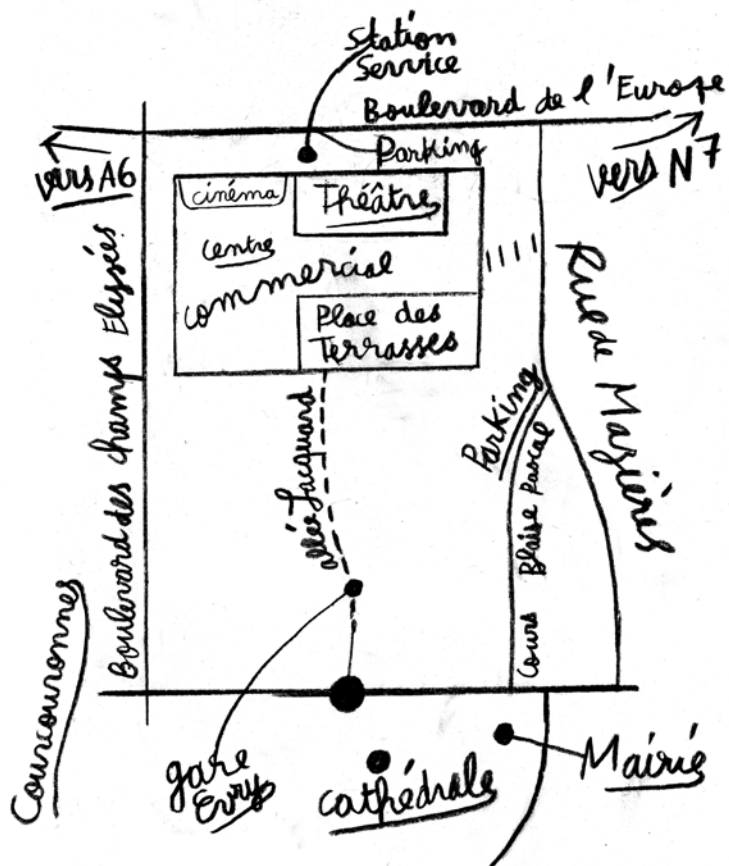 Station
Service
Boulevard de l'Europe
vers A6
Parking
vers N7
cinéma
Théâtre
centre
commercial
Place des
Terrasses
Boulevard des champs Elysées
Rue de Mazières
Parking
allée Jacquard
Cours Blaise Pascal
Courcouronnes
gare
Evry
cathédrale
Mairie